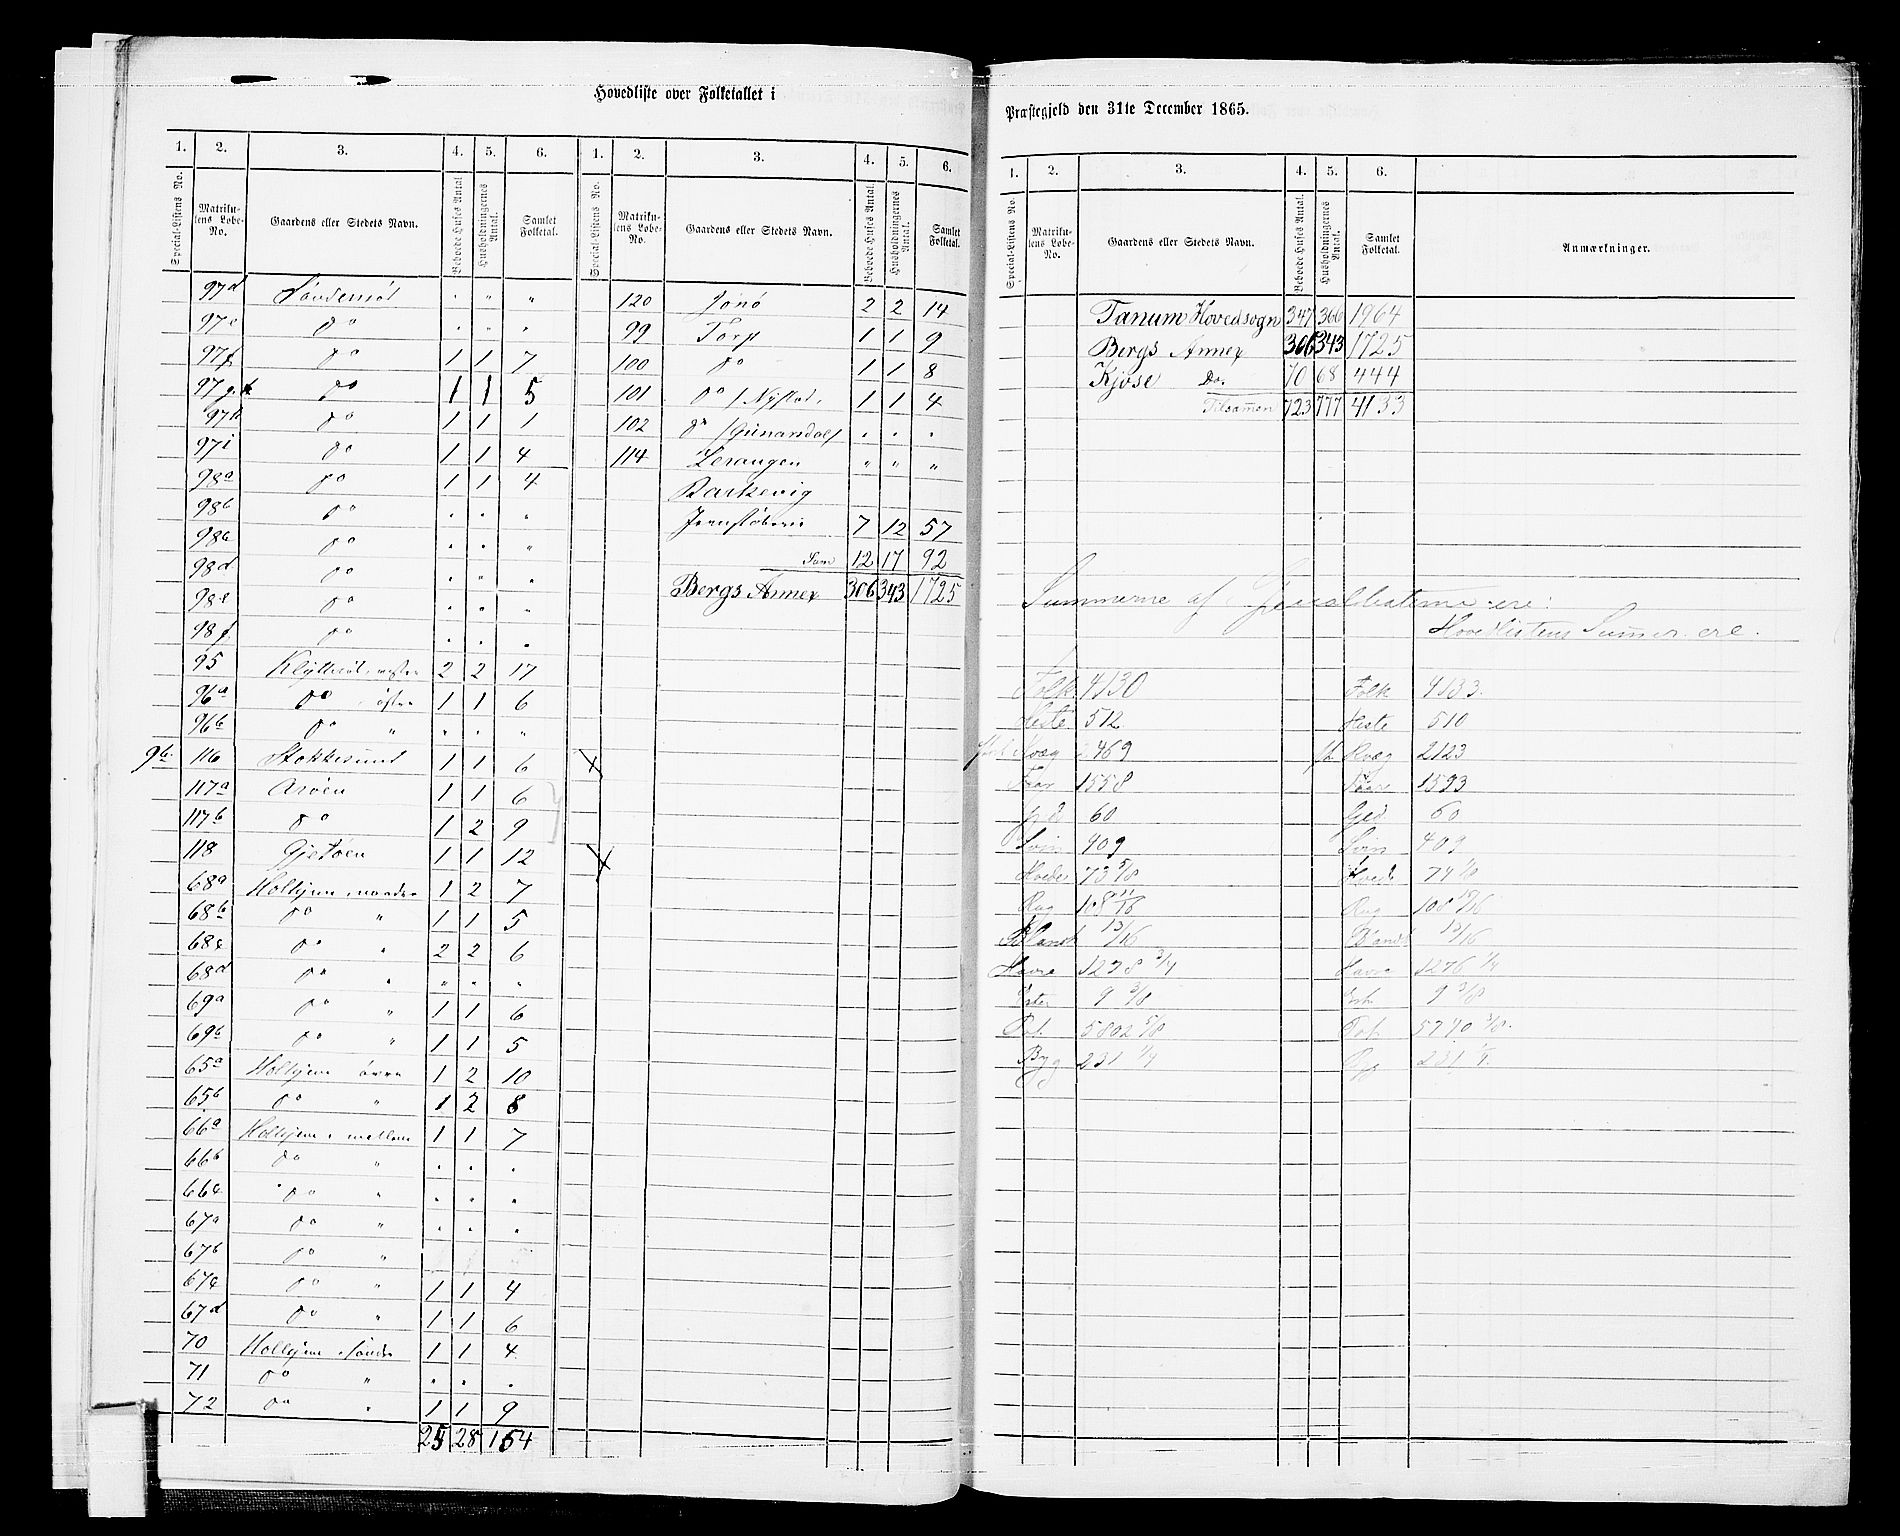 Hovedliste over Folketallet i
1. 2. 3. 4. 5. 6. 1. 2. 3. 4. 5. 6.
Special-Listens No. Matrikulens Løbe-No. Gaardens eller Stedets Navn. Beboede Huses Antal. Husholdningernes Antal. Samlet Folketal. Special-Listens No. Matrikulens Løbe-No. Gaardens eller Stedets Navn. Beboede Huses Antal. Husholdningernes Antal. Samlet Folketal.
97d " " "
97e do " " "
97f do 1 1 7
97g do 1 1 5
97h do 1 1 1
97i do 1 1 4
98a do 1 1 4
98b do " " "
98c do " " "
98d do " " "
98e do " " "
98f do " " "
95 2 2 17
96a do østre 1 1 6
96b do " " " "
9b. 116 Stokkesund 1 1 6
117a Arøen 1 1 6
117b do 1 2 9
118 Gjetøen 1 1 12
68a Holhjem nordre 1 2 7
68b do " 1 1 5
68c do " 2 2 6
68d do " " " "
69a do " 1 1 6
69b do " 1 1 5
65a Holhjem øvre 1 2 10
65b do " 1 2 8
66a Holhjem mellem 1 1 7
66b do " " " "
66c do " " " "
67a do " " " "
67b do "
67c do " 1 1 4
67d do " 1 1 6
70 Holhjem søndre 1 1 4
71 do " " " "
72 do " 1 1 9
25 28 154
120 Jonø 2 2 14
99 Torp 1 1 9
100 do 1 1 8
101 do / Nystad 1 1 4
102 do " " "
114 " " "
Barkevig
7 12 57
Sum 12 17 92
Bergs Annex 306 343 1725
Præstegjeld den 31te December 1865.
1. 2. 3. 4. 5. 6.
Special-Listens No. Matrikulens Løbe-No. Gaardens eller Stedets Navn. Beboede Huses Antal. Husholdningernes Antal. Samlet Folketal. Anmærkninger.
Tanum Hovedsogn 347 366 1964
Bergs Annex 306 343 1725
Kjose Do. 70 68 444
Tilsammen 723 777 4133
Summerne af ere:
Hovedlistens Summer ere.
Folk 4130 Folk 4133.
Heste 512. Heste 510
Kvæg 2469 Kvæg 2123
Faar 1558 Faar 1593
Ged 60 Ged 60
Svin 409 Svin 409
Hvede 73 5/8 Hvede 74 1/8
Rug 108 11/16 Rug 108 15/16
Bland 13/16 Bland 13/16
Havre 1278 3/4 Havre 1276 1/4
Erter 9 3/8 Ert 9 3/8
Pot. 5802 5/8 Pot. 5770 3/8.
Byg 231 1/4 Byg 231 1/4.